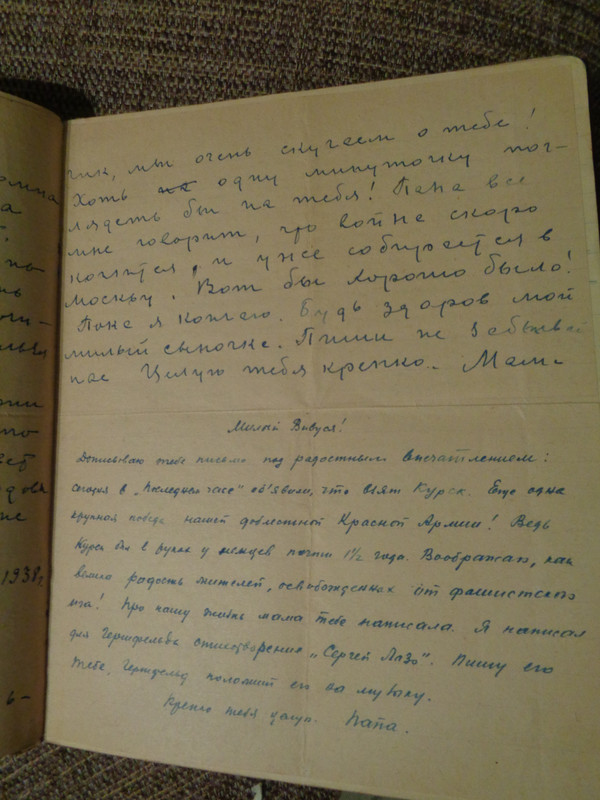 чик, мы очень скучаем о тебе!
Хоть на одну минуточку пог-
лядеть бы на тебя! Папа все
мне говорит, что война скоро
кончится, и уже собирается в
Москву. Вот бы хорошо было!
Пока я кончаю. Будь здоров мой
милый сыночка. Пиши не забывай
нас Целую тебя крепко. Мам.
Милый Вивуся!
Дописываю тебе письмо под радостным впечатлением:
сегодня в „Последний час" об'явили, что взят Курск. Еще одна
крупная победа нашей доблестной Красной Армии! Ведь
Курск был в руках у немцев почти 1½ года. Воображаю, как
велика радость жителей, освобожденных от фашистского
ига! Про нашу жизнь мама тебе написала. Я написал
для стихотворение „Сергей Лазо". Пишу его
тебе. положит его на музыку.
Крепко тебя целую. Папа.
рмина
а
по
нь
ри
то
ет
довя
не
1938г.
ь-